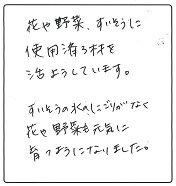 花や野菜、すいそうに
使用済ろ材を
活ようしています。
すいそうの水のにごりがなく
花や野菜も元気に
育つようになりました。